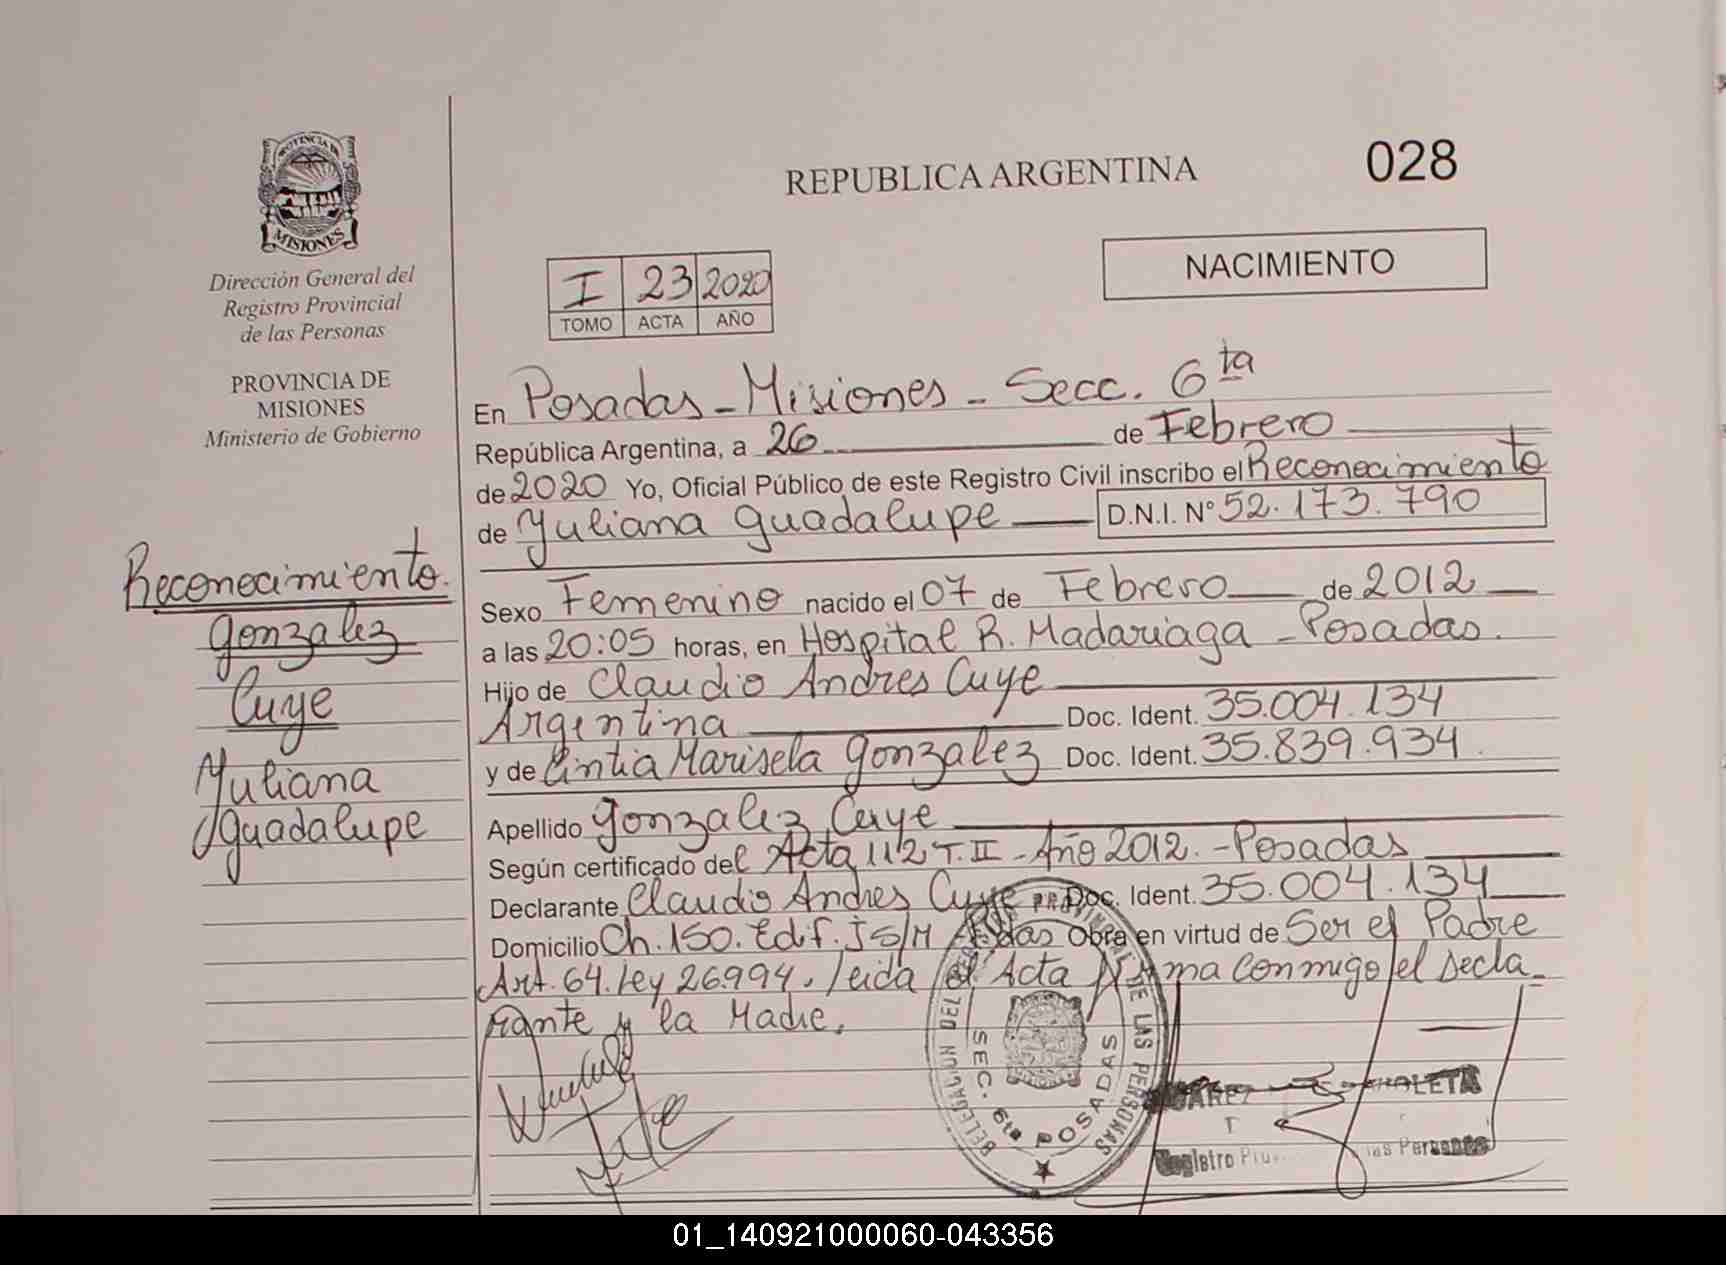 REPUBLICA ARGENTINA
028
PROVINCIA DE
MISIONES
Dirección General del
Registro Provincial
de las Personas
PROVINCIA DE
MISIONES
Ministerio de Gobierno
NACIMIENTO
I 23 2020
TOMO ACTA AÑO
En Posadas - Misiones - Secc. 6ta
República Argentina, a 26 de Febrero
de 2020 Yo, Oficial Público de este Registro Civil inscribo el Reconocimiento
de Yuliana Guadalupe D.N.I. N° 52.173.790
Reconocimiento.
Gonzalez
Cuye
Yuliana
Guadalupe
Sexo Femenino nacido el 07 de Febrero de 2012
a las 20:05 horas, en Hospital R. Madariaga - Posadas.
Hijo de Claudio Andres Cuye
Argentina Doc. Ident. 35.004.134
y de Cintia Marisela Gonzalez Doc. Ident. 35.839.934.
Apellido Gonzalez Cuye
Según certificado del Acta 112 T. II - Año 2012. - Posadas
Declarante Claudio Andres Cuye Doc. Ident. 35.004.134
Domicilio Ch. 150. Edif. J S/N Pdas Obra en virtud de Ser el Padre
Art. 64. Ley 26.994. Leida el Acta firma conmigo el decla-
rante y la Madre.
DE LAS PERSONAS
SEC. 6ta POSADAS
Registro las Personas
01_140921000060-043356